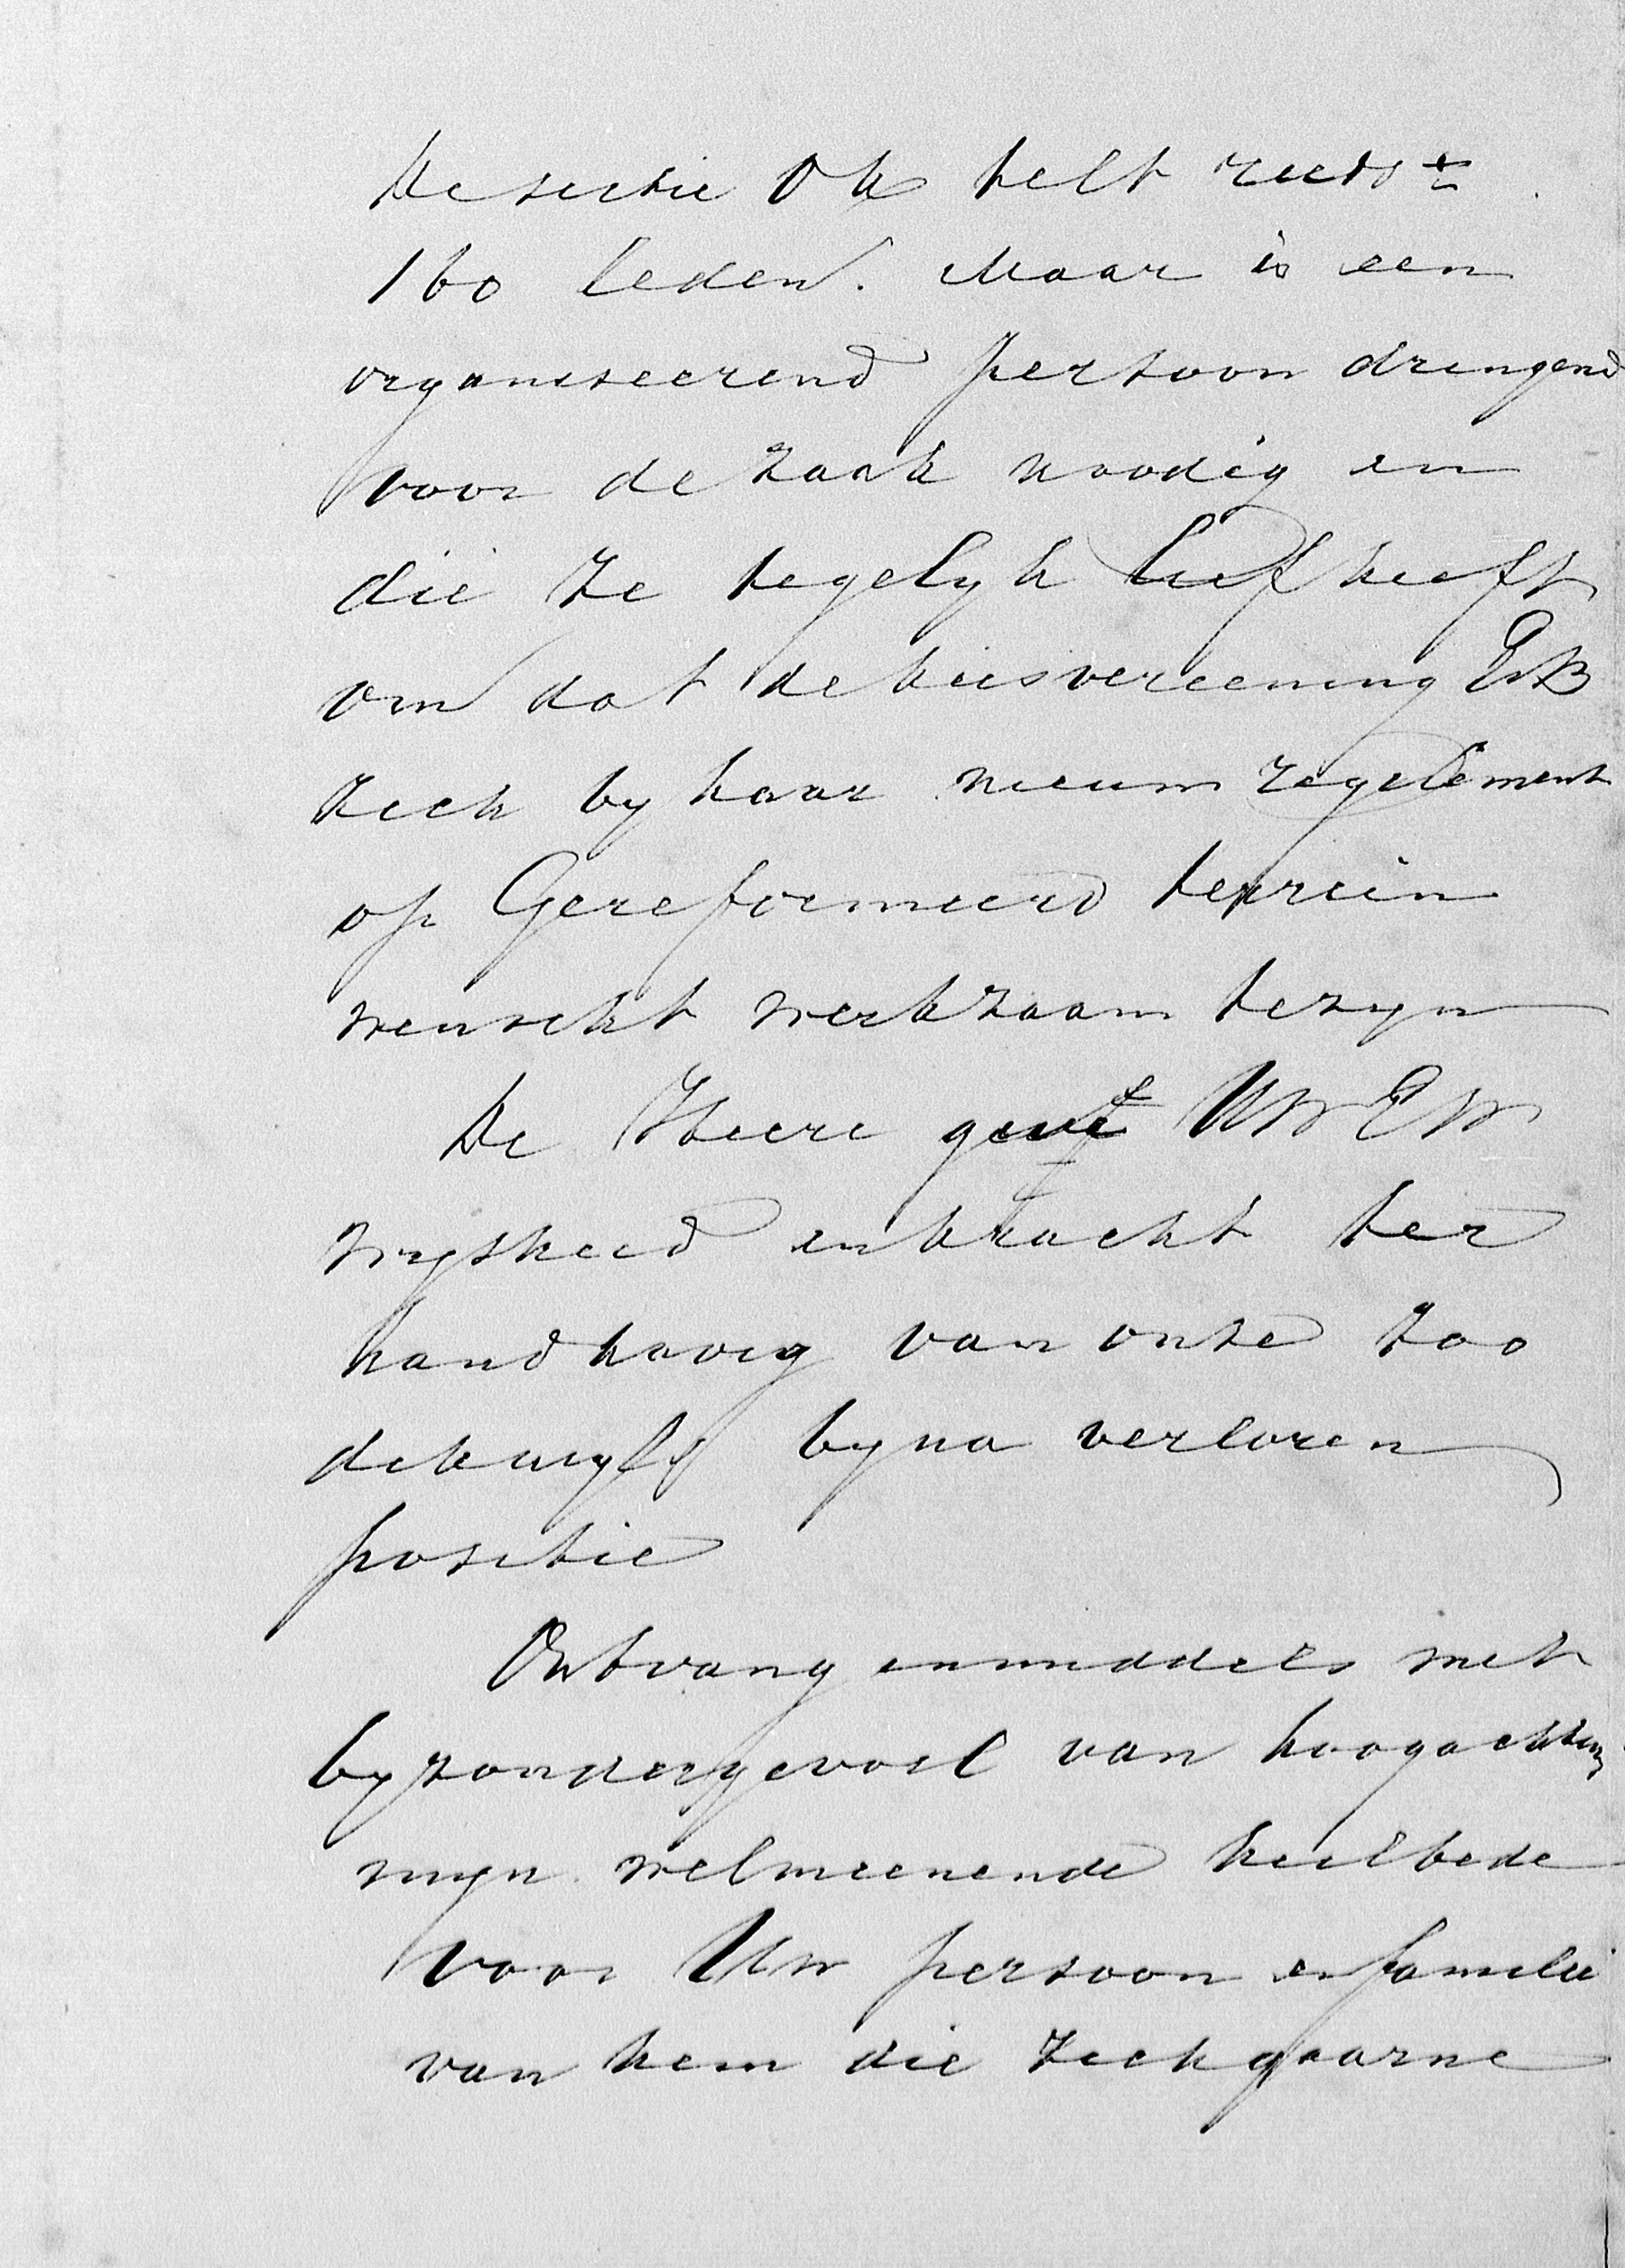 De sectie OK telt reeds ±
160 leden. Maar is een
organiseerend persoon dringend
voor de zaak noodig en
die ze tegelyk lief heeft
om dat de kiesvereening
zich by haar nieuw regelement
op Gereformeerd terrein
wenscht werkzaam te zyn
De Heere geve UWEW
wysheid en kracht ter
handhavig van onze zoo
dekwyls byna verloren
positie
Ontvang inmiddels met
byzonder gevoel van hoogachting
myn welmeenende heilbede
voor Uw persoon en familie
van hem die zich gaarne